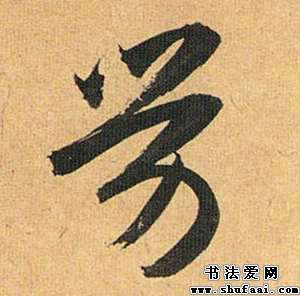 勞
书法爱网
www.shufaai.com